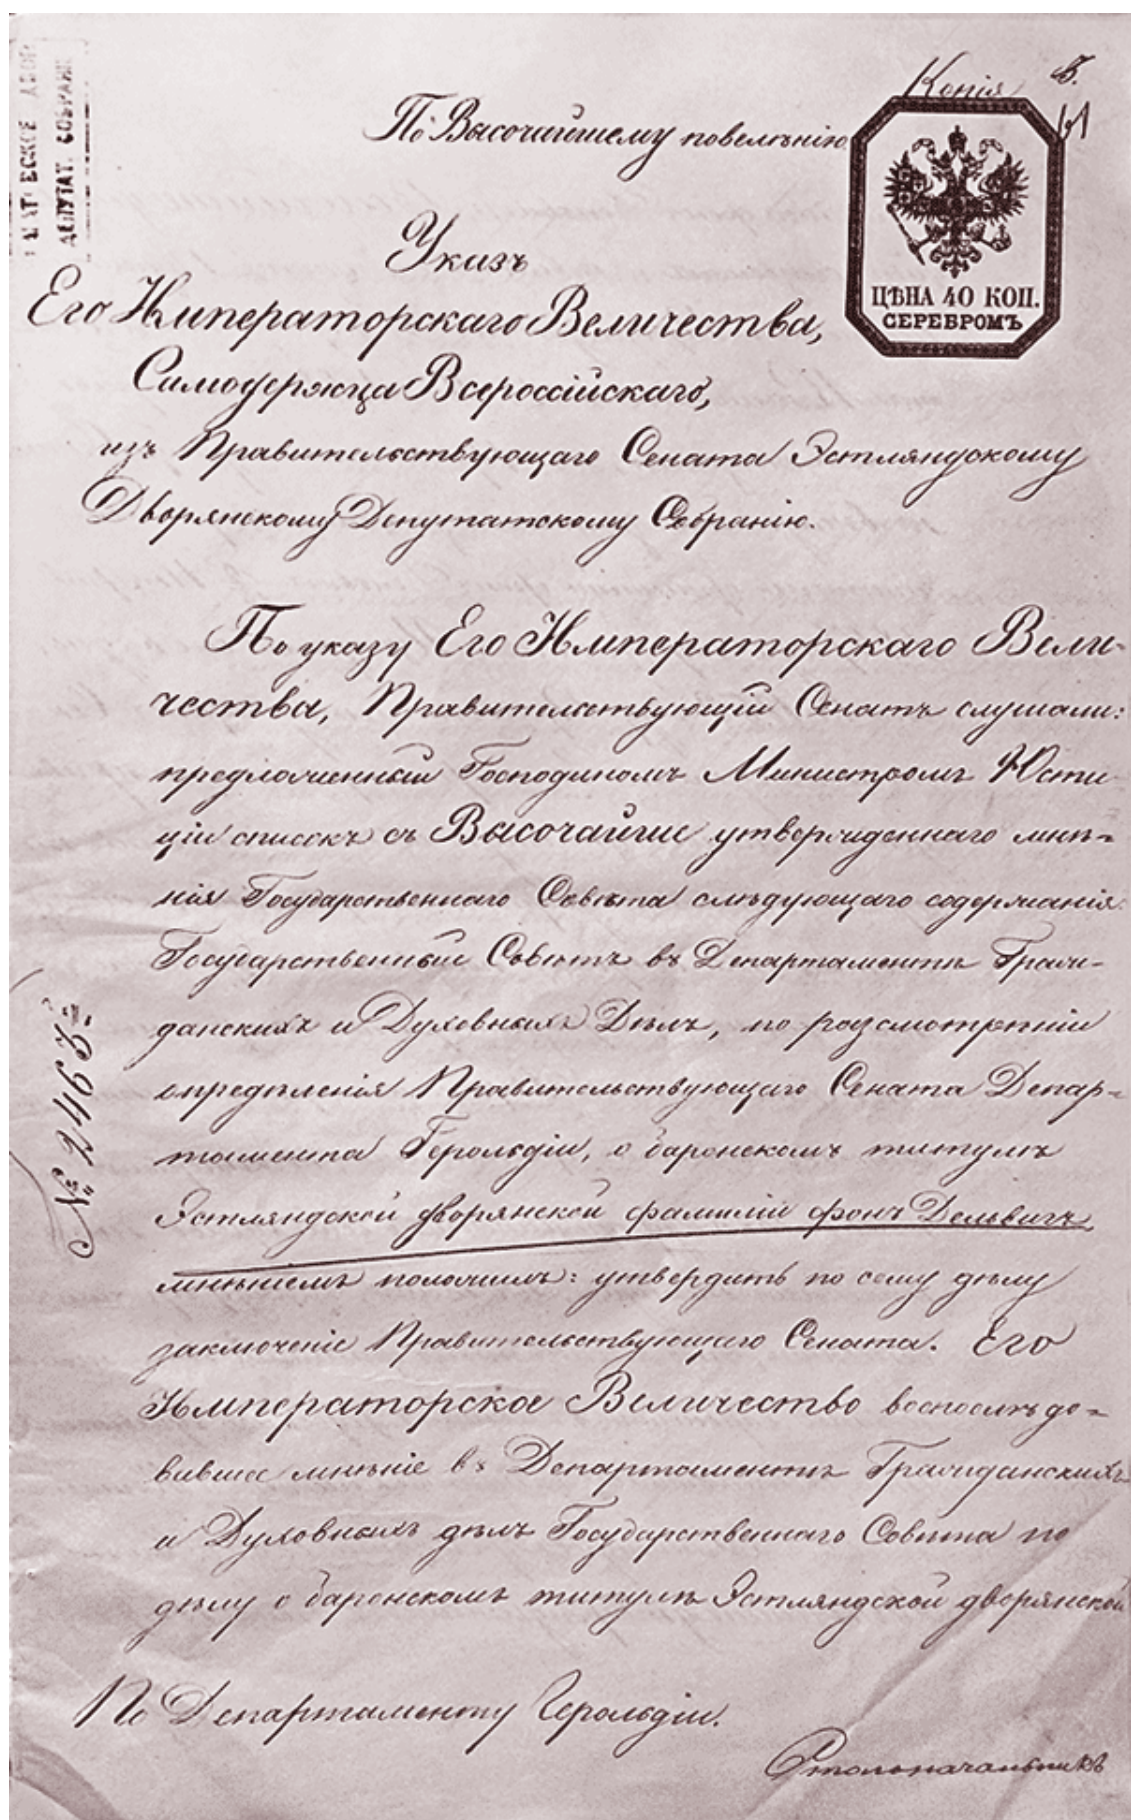 Копія
По Высочайшему повелѣнію
ЦѢНА 40 КОП.
СЕРЕБРОМЪ
ДЕПУТАТ. СОБРАНІ
Указъ
Его Императорскаго Величества,
Самодержца Всероссійскаго,
изъ Правительствующаго Сената Эстляндскому
Дворянскому Депутатскому Собранію.
По указу Его Императорскаго Вели-
чества, Правительствующій Сенатъ слушали:
предложенный Господиномъ Министромъ Юсти
ціи списокъ съ Высочайше утвержденнаго мнѣ-
нія Государственнаго Совѣта слѣдующаго содержанія:
Государственный Совѣтъ въ Департаментѣ Граж-
данскихъ и Духовныхъ Дѣлъ, по разсмотрѣніи
опредѣленія Правительствующаго Сената Депар-
тамента Герольдіи, о баронскомъ титулѣ
Эстляндской дворянской фамиліи фонъ Дельвигъ,
мнѣніемъ положилъ: утвердить по сему дѣлу
заключеніе Правительствующаго Сената. Его
Императорское Величество воспослѣдо-
вившее мнѣніе въ Департаментѣ Гражданскихъ
и Духовныхъ дѣлъ Государственнаго Совѣта по
дѣлу о баронскомъ титулѣ Эстляндской дворянской
№ 2463
По Департаменту Герольдіи.
Столоначальникъ